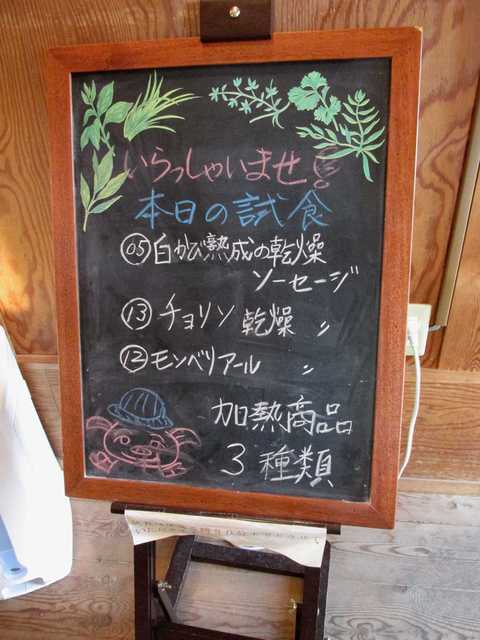 いらっしゃいませ!
本日の試食
05 白かび熟成の乾燥
ソーセージ
⑬ チョリソ 乾燥 〃
⑫ モンベリアール 〃
加熱商品
3種類